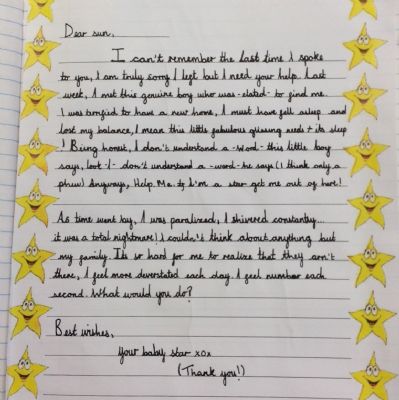 Dear sun,
I can't remember the last time I spoke
to you, I am truly sorry I left but I need your help. Last
week, I met this genuine boy who was -elated- to find me.
I was terrified to have a new home, I must have fell asleep and
lost my balance, I mean this little fabulous glowing needs + its sleep
! Being honest, I don't understand a -word- this little boy
says, look -I- don't understand a -word- he says (I think only a
phew) Anyways, Help. Me. I'm a star get me out of here!
As time went by, I was paralized, I shivered constantly...
it was a total nightmare! I couldn't think about anything but
my family. Its so hard for me to realize that they arn't
there, I feel more deverstated each day. I feel number each
second. What would you do?
Best wishes,
your baby star xox
(Thank you!)